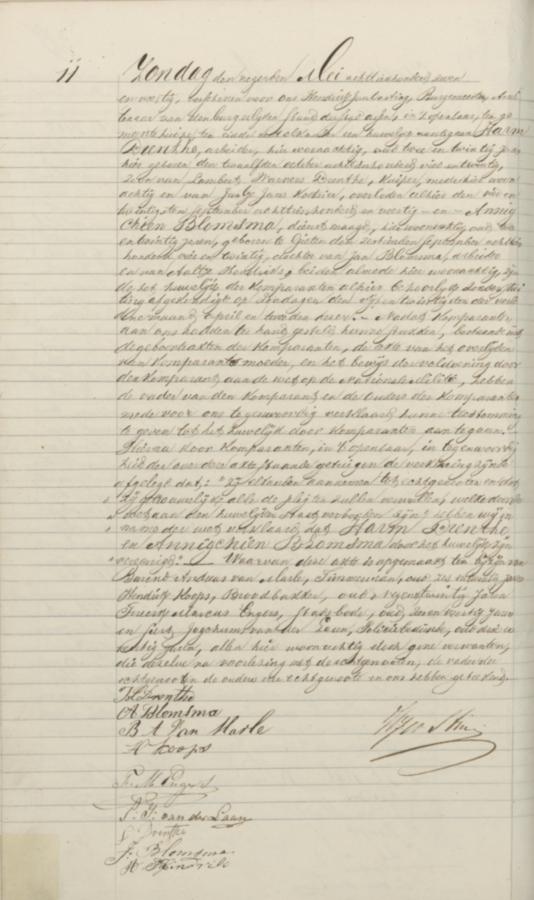 11 Zondag den negenden Mei achttienhonderd zeven
en veertig, verschenen voor ons Burgemeester, Amb
tenaar van den burgerlijken stand in t openbaar, ten ge
meentehuize ten einde een huwelijk aantegaan Harm
Drenthe, arbeider, hier woonachtig, oud twee en twintig jaren
hier geboren den twaalfden october achttienhonderd vier en twintig,
zoon van Lambert Drenthe, Kuiper, mede hier woon
achtig en van Jans overleden alhier den vier en
twintigsten september achttienhonderd en veertig – en – Annig
chien Blomsma, dienstmaagd, hier woonachtig, oud
en twintig jaren, geboren te Gieten den september achttien
honderd vier en twintig, dochter van Jan Blomsma, arbeider
en van Aaltje beiden almede hier woonachtig, zijn
de het huwelijk der Komparanten alhier behoorlyk zonder stui
ting afgekondigd op Zondagen den vijf en twintigsten der vorige
maand April en tweeden dezer. – Nadat Komparanten
aan ons hadden te hand gesteld hunne stukken, bestaande uit
de geboorteakten der Komparanten, de akte van het overlijden
van Komparants moeder, en het bewijs der voldoening door
den Komparant aan de wet op de Nationale Militie, hebben
de vader van den Komparant en de ouders der Komparante
mede voor ons tegenwoordig verklaard hunne toestemming
te geven tot het huwelijk door Komparanten aan te gaan.
Hierna door Komparanten, in t openbaar, in tegenwoordig
heid der na deze akte staande getuigen de verklaring zijnde
afgelegd dat: "zij elkander aannemen tot echtgenooten en dat
zij getrouwelijk alle de pligten zullen vervullen, welke door de
wet aan den huwelijken staat verbonden zijn" hebben wij in
naam der wet verklaard, dat Harm Drenthe
en Annigchien Blomsma door het huwelijk zijn
vereenigd. – Waarvan deze akte is opgemaakt ten bijzijn van
Barend Andreas van Marle, Timmerman, oud zes en twintig jaren
Hendrik Koops, Broodbakker, oud negen en twintig Jaren
Marcus Engers, stadsbode, oud zeven en veertig Jaren
en van der Laan, Policiedienaar, oud drie en
veertig Jaren, allen hier woonachtig en geene verwanten,
die dezelve na voorlezing met de echtgenooten, de vader des
echtgenoots en de ouders der echtgenoote en ons hebben geteekend.
H Drenthe
A Blomsma
B A Van Marle
H Koops
M Engers
van der Laan
L Drenthe
J. Blomsma